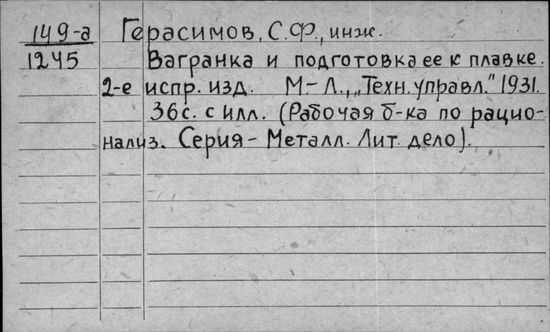 149-а Герасимов, С.Ф., инж.
1245 Вагранка и подготовка ее к плавке.
2-е испр. изд. М-Л., „Техн. управл." 1931.
36с. с илл. (Рабочая б-ка по рацио-
нализ. Серия - Металл. Лит. дело).